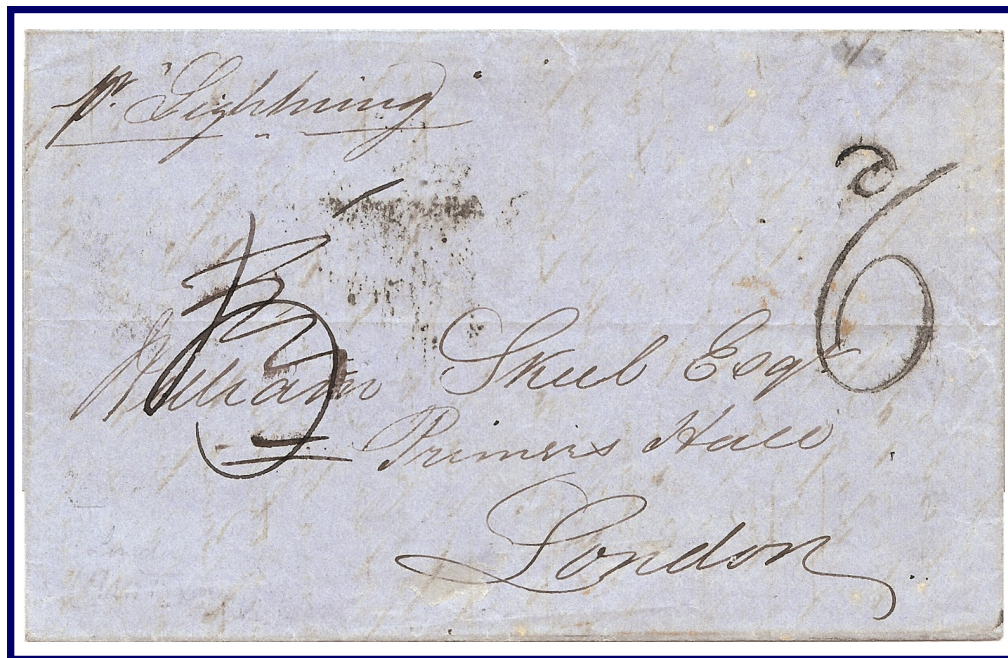 pr "Lightning"
6
William Skeel Esqr
Primers Hall
London